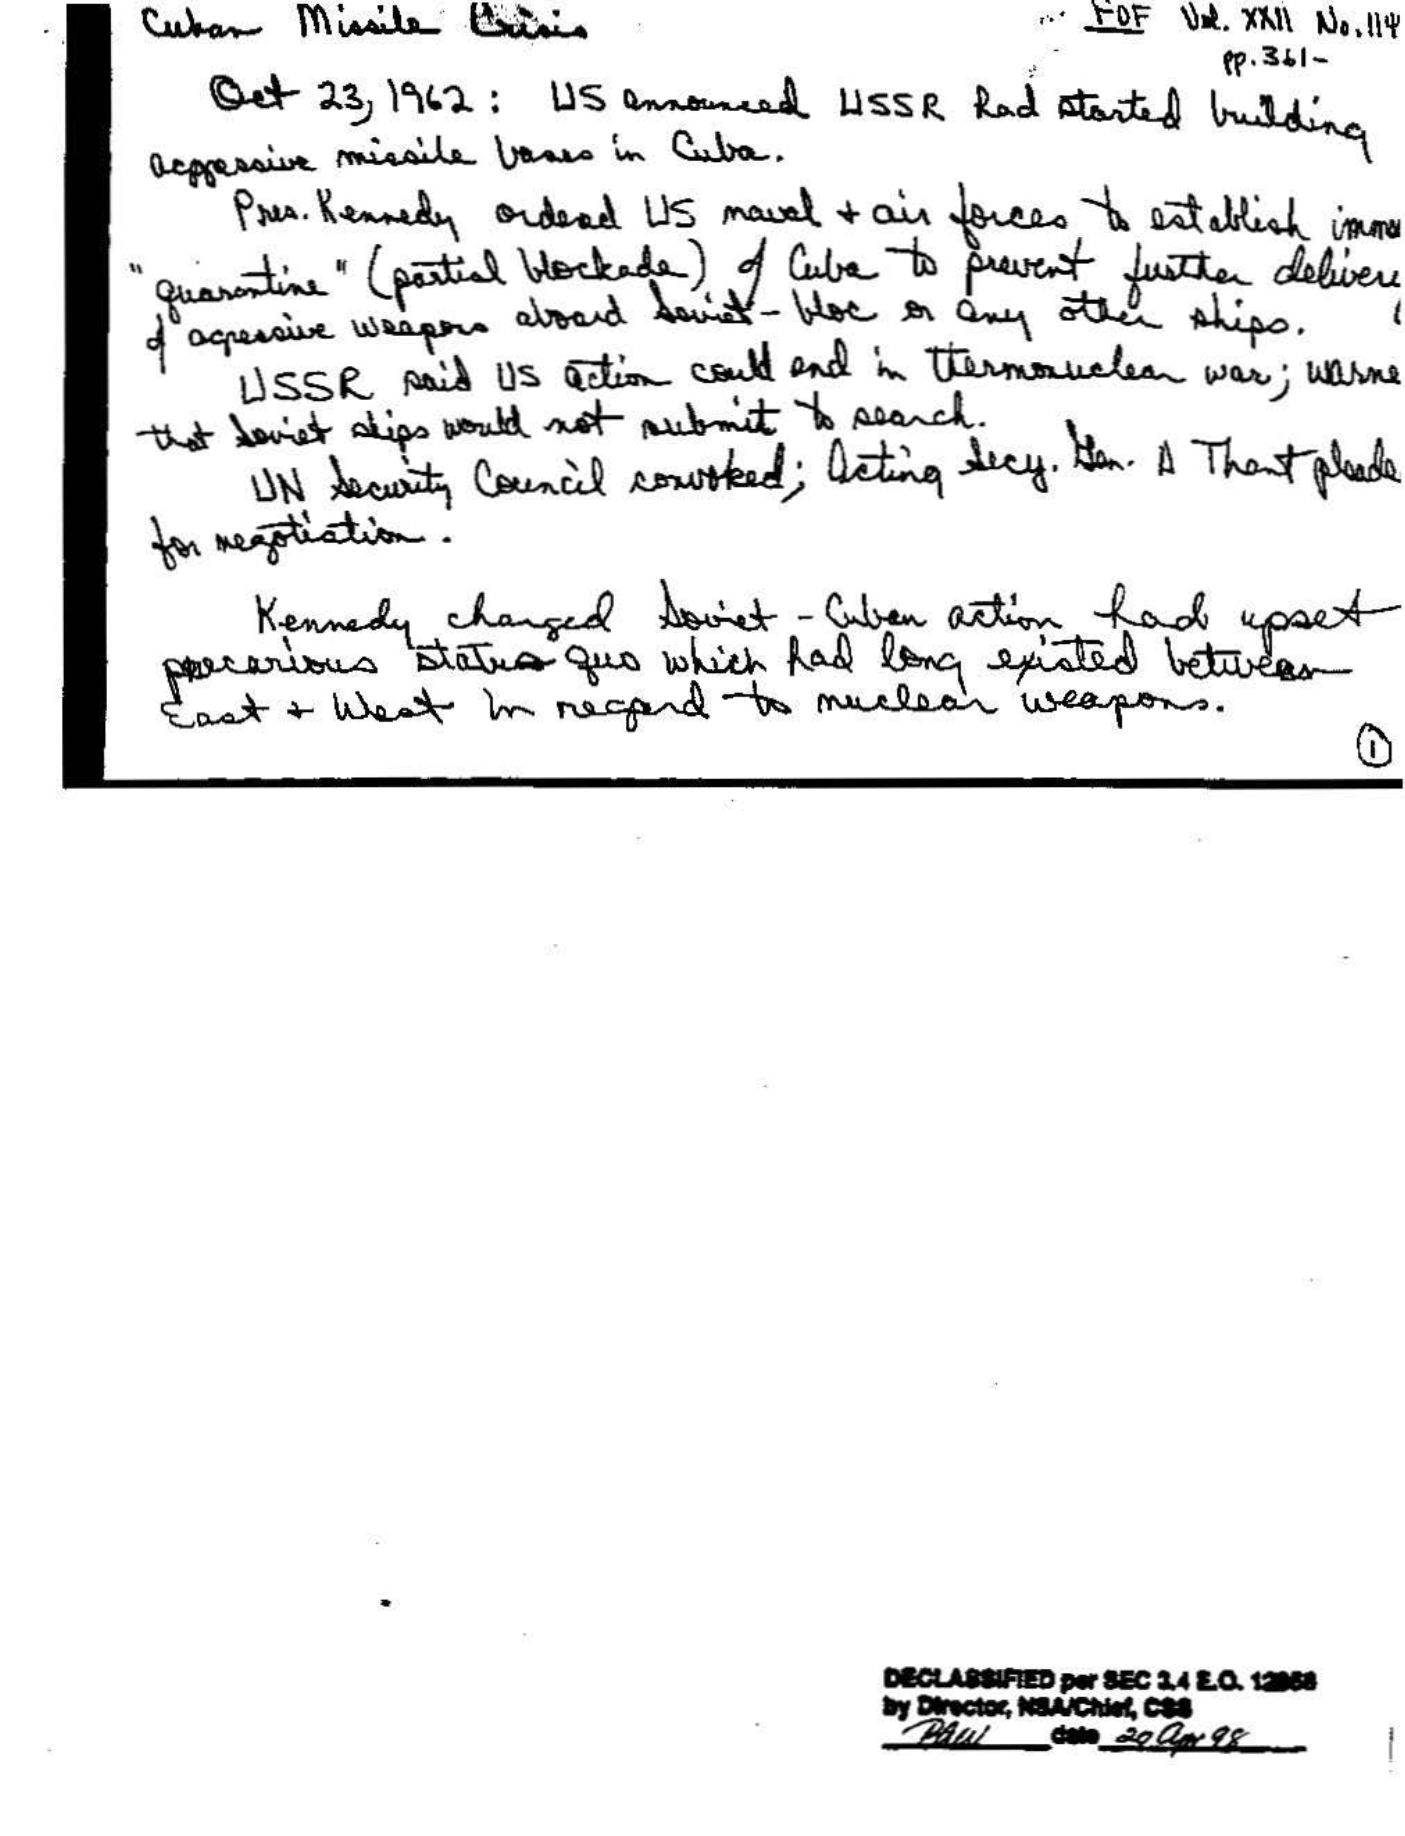 Cuban Missile Crisis
FOF Vol. XXII No. 114
pp. 361-
Oct 23, 1962: US announced USSR had started building
aggressive missile bases in Cuba.
Pres. Kennedy ordered US naval + air forces to establish imme
"quarantine" (partial blockade) of Cuba to prevent further delivery
of agressive weapons aboard Soviet-bloc or any other ships.
USSR said US action could end in thermonuclear war; warne
that Soviet ships would not submit to search.
UN Security Council convoked; Acting Secy. Gen. Thant pleade
for negotiation.
Kennedy charged Soviet-Cuban action had upset
precarious status quo which had long existed between
East + West in regard to nuclear weapons.
1
DECLASSIFIED per SEC 3.4 E.O. 12958
by Director, NSA/Chief, CSS
date 20 Apr 98